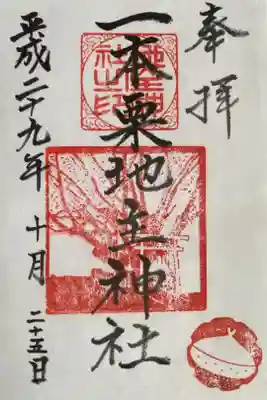 奉拝
一本栗地主神社
平成二十九年 十月 二十五日